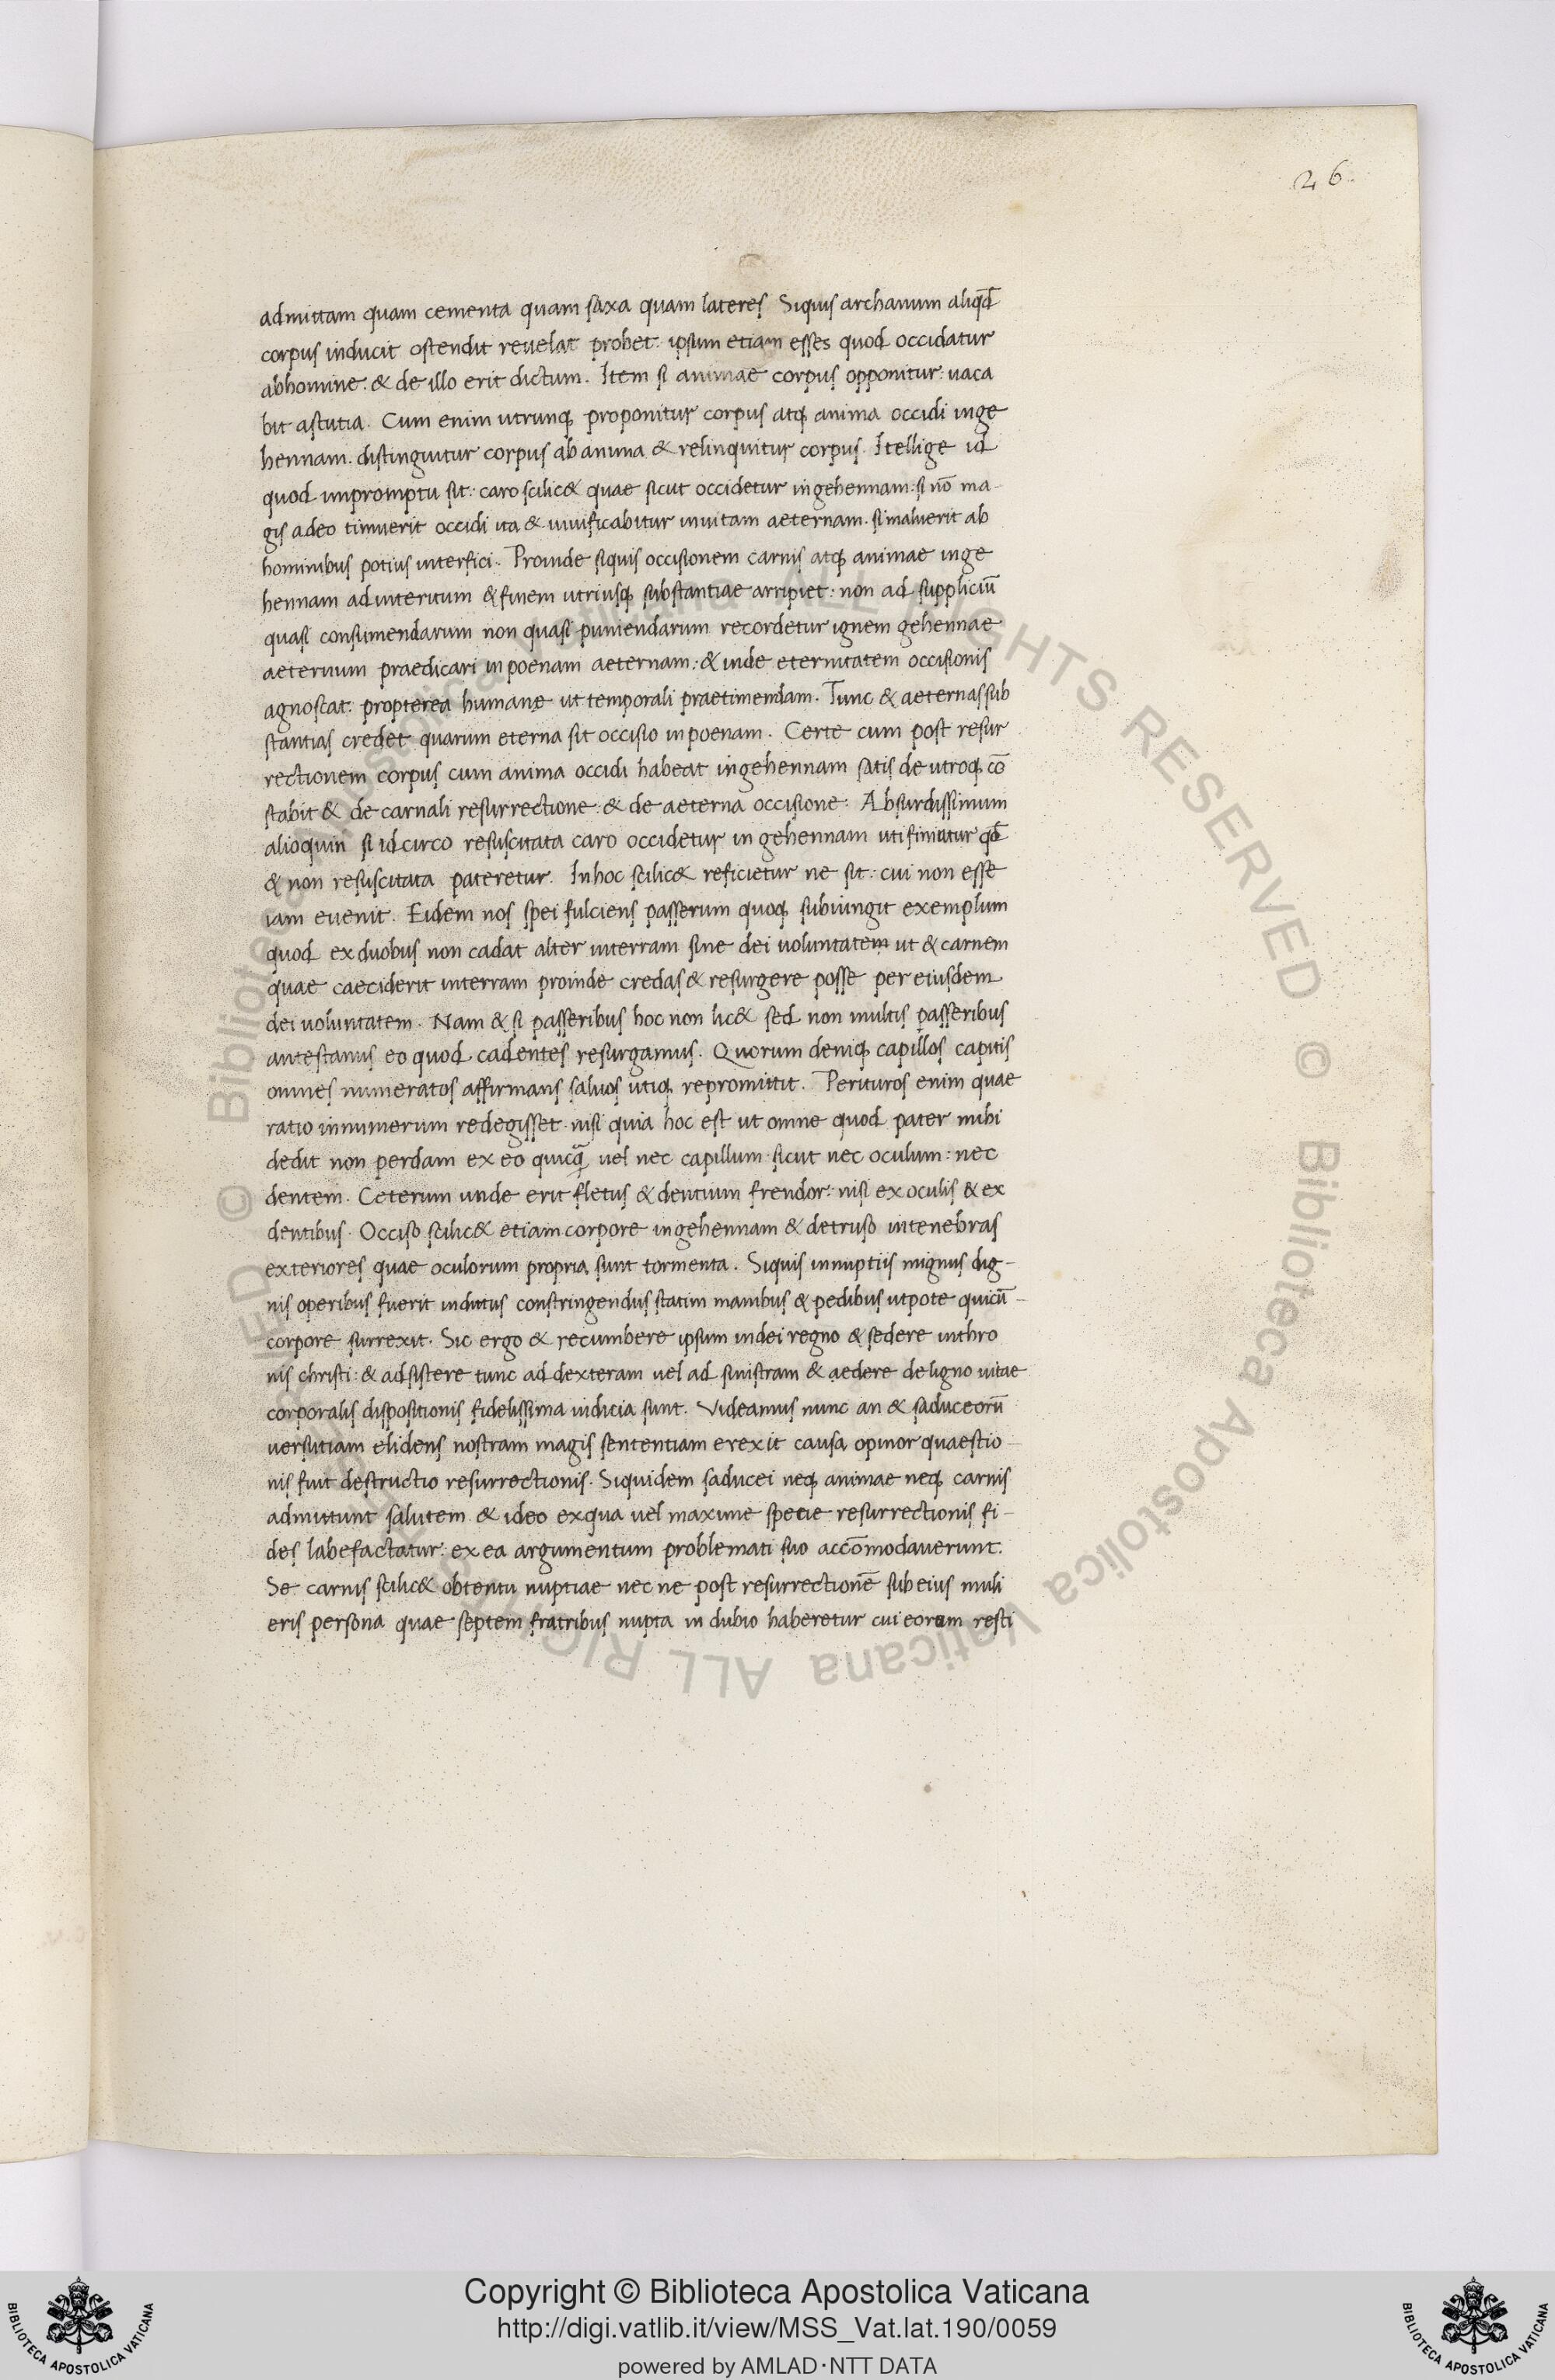 26.
admittam quam cementa quam saxa quam lateres Siquis archanum aliqđ
corpus inducit ostendit reuelat probet: ipsum etiam esses quod occidatur
abhomine. & de illo erit dictum. Item si animae corpus opponitur: uaca
bit astutia. Cum enim utrunq; proponitur corpus atq; anima occidi inge
hennam. distinguitur corpus ab anima & relinquitur corpus. Itellige id
quod impromptu sit: caro scilic& quae sicut occidetur in gehennam: si nō ma-
gis adeo timuerit occidi ita & uiuificabitur inuitam aeternam. si maluerit ab
hominibus potius interfici. Proinde siquis occisionem carnis atq; animae inge
hennam ad interitum & finem utriusq; substantiae arripiet: non ad suppliciū
quasi consumendarum non quasi puniendarum recordetur ignem gehennae
aeternum praedicari in poenam aeternam: & inde eternitatem occisionis
agnoscat. propterea humanę ut temporali praetimendam. Tunc & aeternas sub
stantias credet quarum eterna sit occisio in poenam. Certe cum post resur
rectionem corpus cum anima occidi habeat in gehennam satis de utroq; cō
stabit & de carnali resurrectione: & de aeterna occisione: Absurdissimum
alioquin si idcirco resuscitata caro occidetur in gehennam uti finiatur qđ
& non resuscitata pateretur. In hoc scilic& reficietur ne sit: cui non esse
iam euenit. Eidem nos spei fulciens passerum quoq; subiungit exemplum
quod ex duobus non cadat alter interram sine dei uoluntatem ut & carnem
quae caeciderit interram proinde credas & resurgere posse per eiusdem
dei uoluntatem. Nam & si passeribus hoc non lic& sed non multis passeribus
antestamus eo quod cadentes resurgamus. Quorum deniq; capillos capitis
omnes numeratos affirmans saluos utiq; repromittit. Perituros enim quae
ratio innumerum redegisset. nisi quia hoc est ut omne quod pater mihi
dedit non perdam ex eo quicq̄ uel nec capillum sicut nec oculum: nec
dentem. Ceterum unde erit fletus & dentium frendor: nisi ex oculis & ex
dentibus. Occiso scilic& etiam corpore in gehennam & detruso intenebras
exteriores quae oculorum propria sunt tormenta. Siquis innuptiis mignus dig-
nis operibus fuerit indutus constringendus statim manibus & pedibus utpote quicū-
corpore surrexit. Sic ergo & recumbere ipsum indei regno & sedere inthro
nis christi: & adsistere tunc ad dexteram uel ad sinistram & aedere de ligno uitae
corporalis dispositionis fidelissima indicia sunt. Videamus nunc an & saduceorū
uersutiam elidens nostram magis sententiam erexit causa opinor quaestio-
nis fuit destructio resurrectionis. Siquidem saducei neq; animae neq; carnis
admittunt salutem & ideo exqua uel maxime specie resurrectionis fi-
des labefactatur: ex ea argumentum problemati suo accōmodauerunt.
Se carnis scilic& obtentu nuptiae nec ne post resurrectionē sub eius muli
eris persona quae septem fratribus nupta in dubio haberetur cui eorum resti
© Biblioteca Apostolica Vaticana ALL RIGHTS RESERVED © Biblioteca Apostolica Vaticana ALL RIGHTS RESERVED
Copyright © Biblioteca Apostolica Vaticana
http://digi.vatlib.it/view/MSS_Vat.lat.190/0059
powered by AMLAD·NTT DATA
BIBLIOTECA APOSTOLICA VATICANA
BIBLIOTECA APOSTOLICA VATICANA